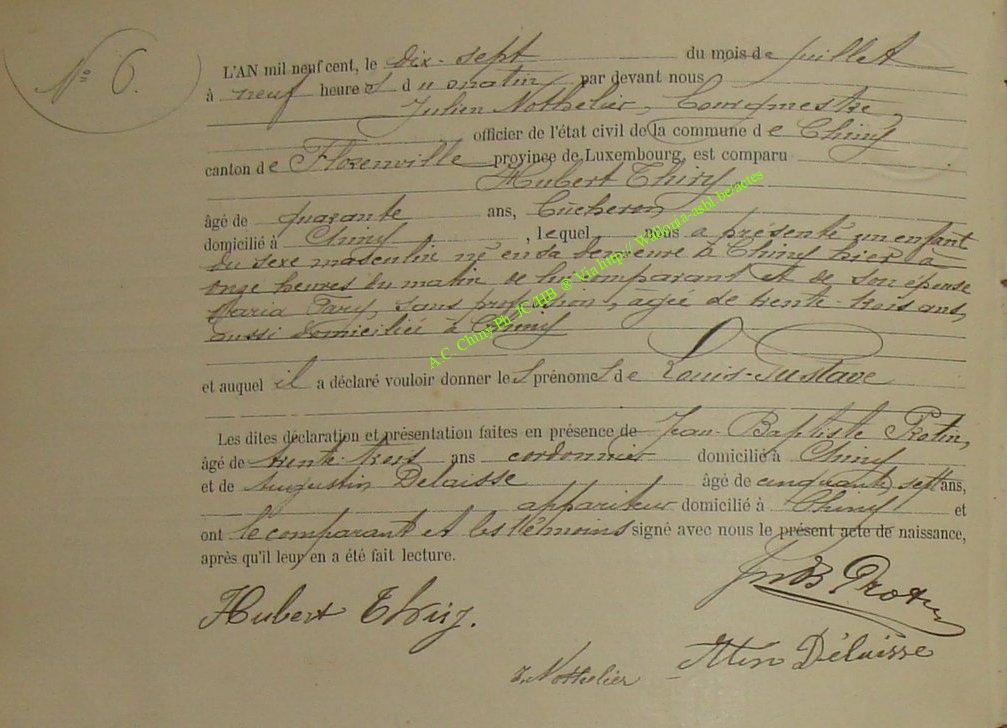 N° 6.
L'AN mil neuf cent, le dix-sept du mois de juillet
à neuf heures du matin par devant nous
Julien Nothelier, Bourgmestre
officier de l'état civil de la commune de Chiny
canton de Florenville province de Luxembourg, est comparu
Hubert Thiry
âgé de quarante ans, Bûcheron
domicilié à Chiny, lequel nous a présenté un enfant
du sexe masculin né en sa demeure à Chiny hier à
onze heures du matin de lui comparant et de son épouse
Maria Fary, sans profession, âgée de trente-trois ans,
aussi domiciliée à Chiny
et auquel il a déclaré vouloir donner les prénoms de Louis-Gustave
Les dites déclaration et présentation faites en présence de Jean-Baptiste Protin,
âgé de trente-trois ans cordonnier domicilié à Chiny
et de Augustin Delaisse âgé de cinquante sept ans,
appariteur domicilié à Chiny et
ont le comparant et les témoins signé avec nous le présent acte de naissance,
après qu'il leur en a été fait lecture.
JnB Protin
Hubert Thiry.
J. Nothelier Atin Délaisse
A.C Chiny Ph JC/HB @ Via http:// Wallonia-asbl.be/actes